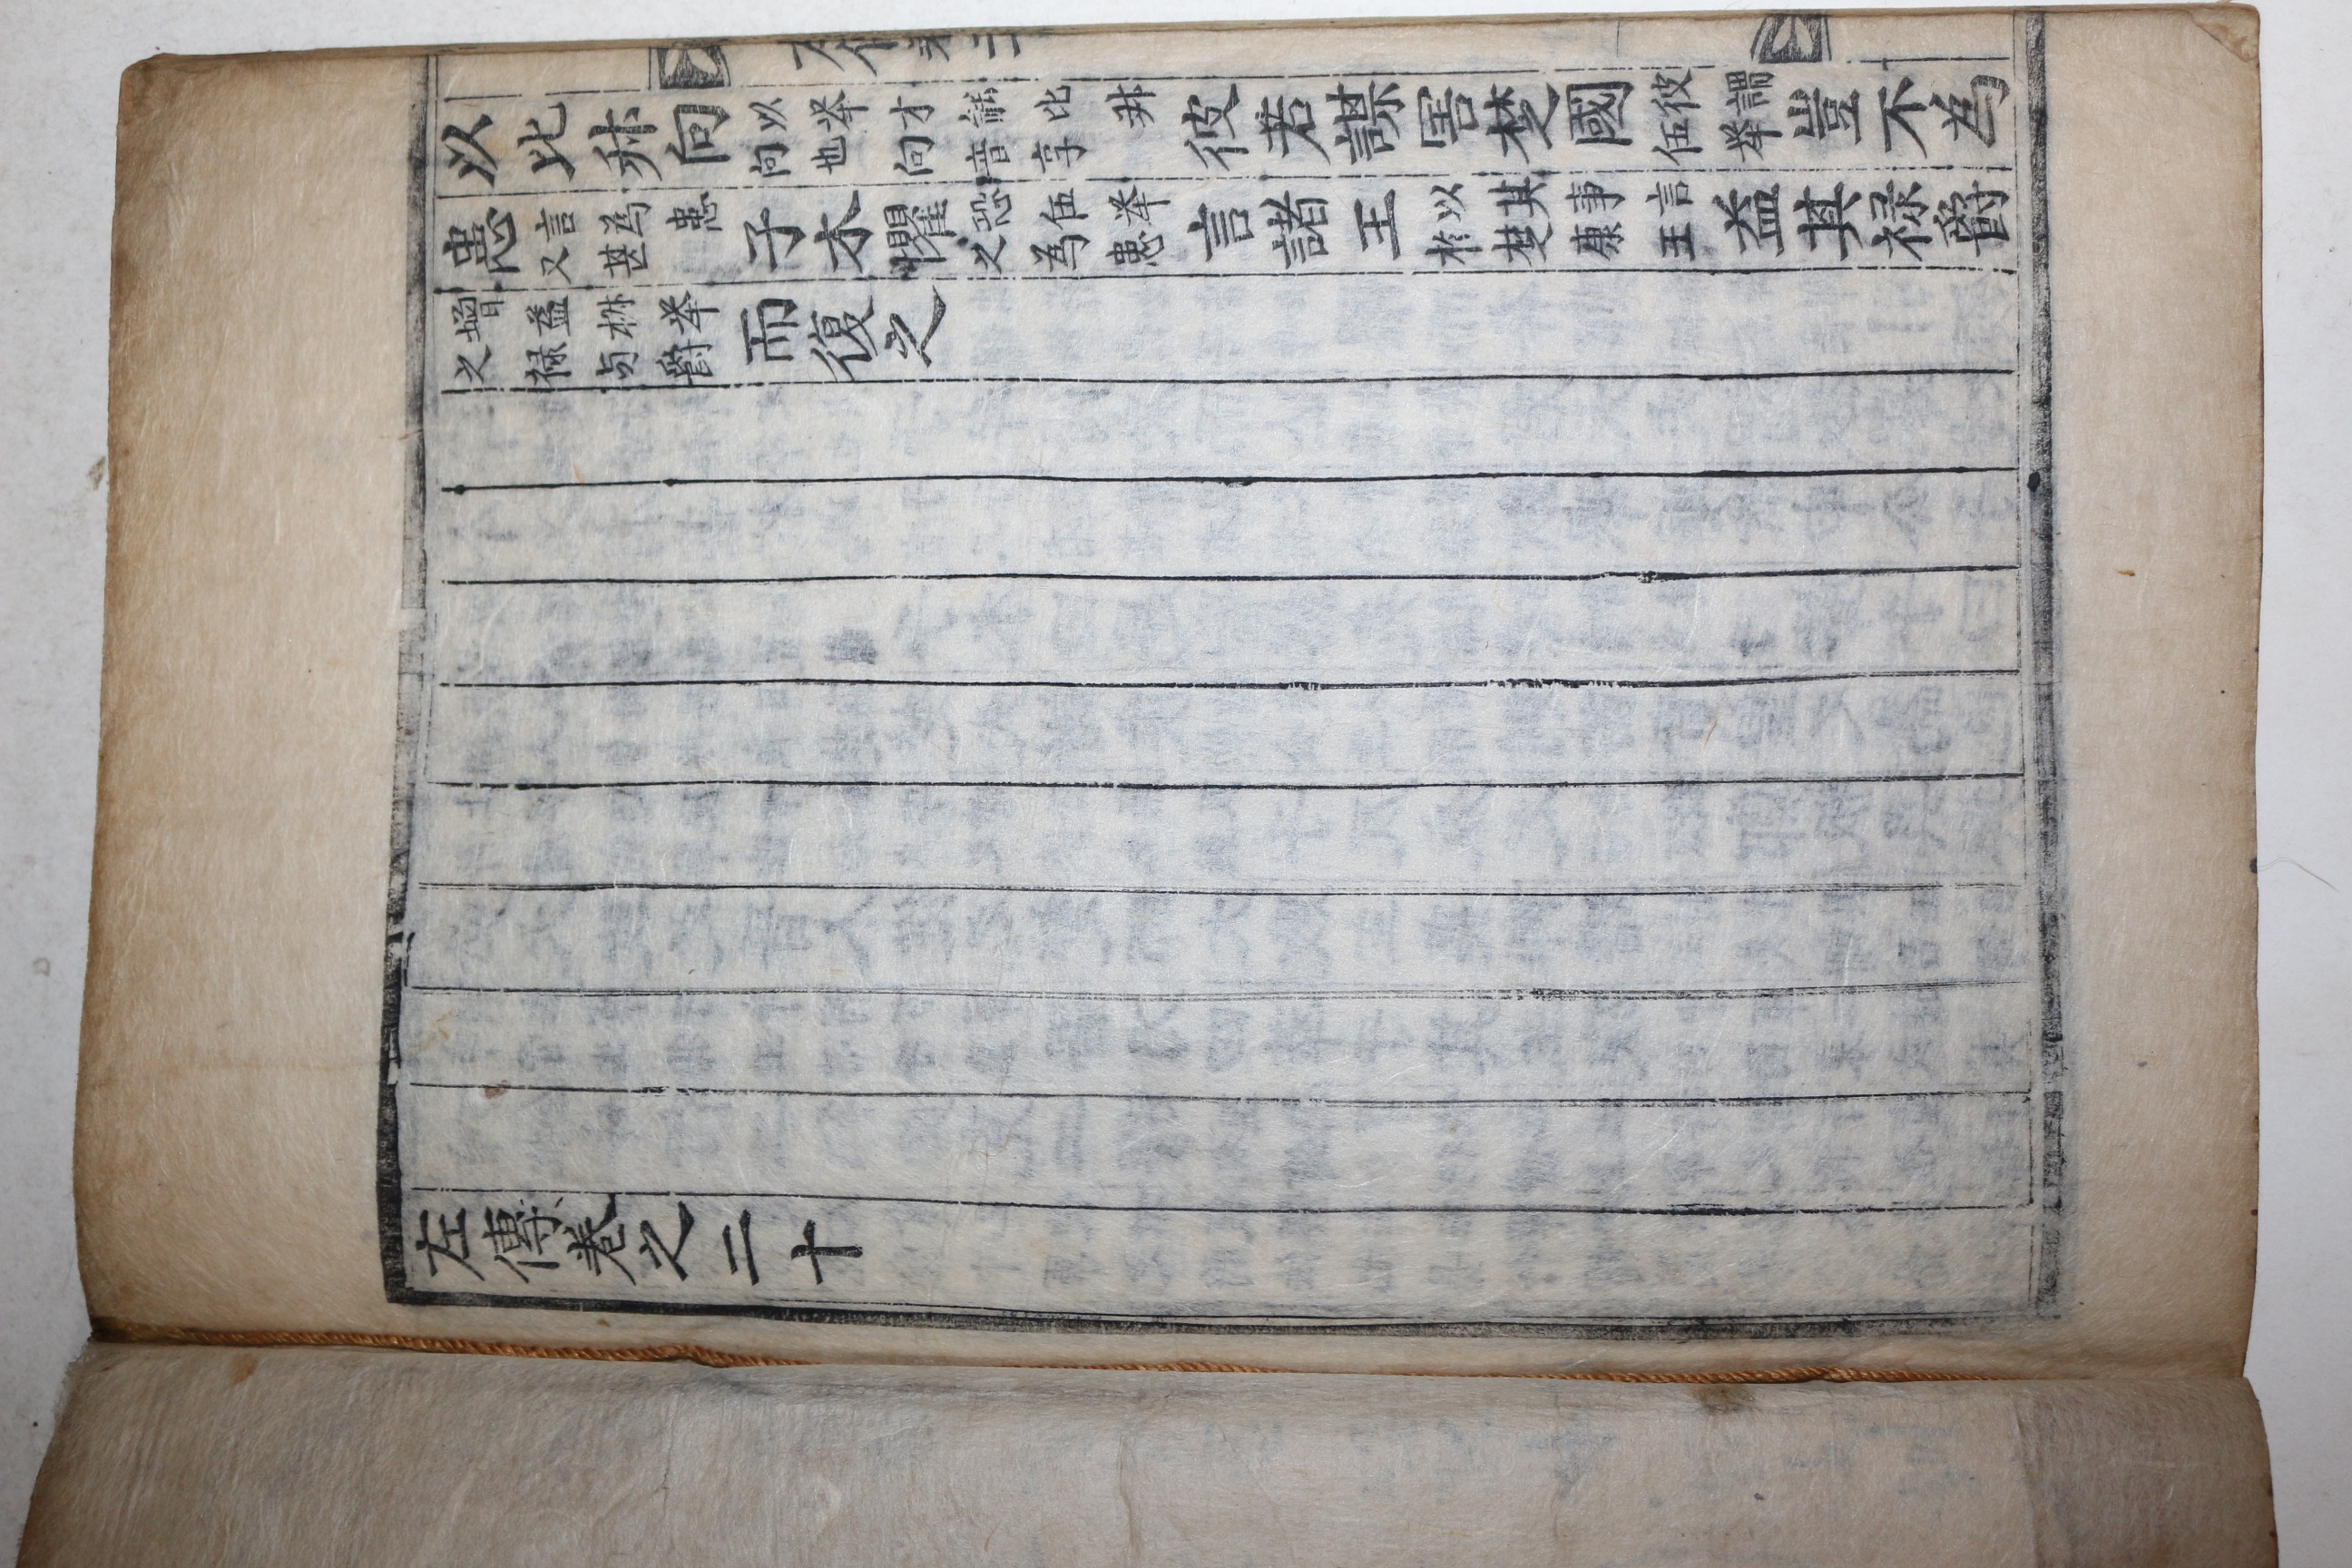 以比叔向以举才能比叔向也向音享彼若謀害楚國彼謂伍举豈不為
患言為患又甚子木懼恐伍举之為患言諸王以其事言於楚康王益其禄爵
增益椒举之禄与爵而復之
左傳卷之二十